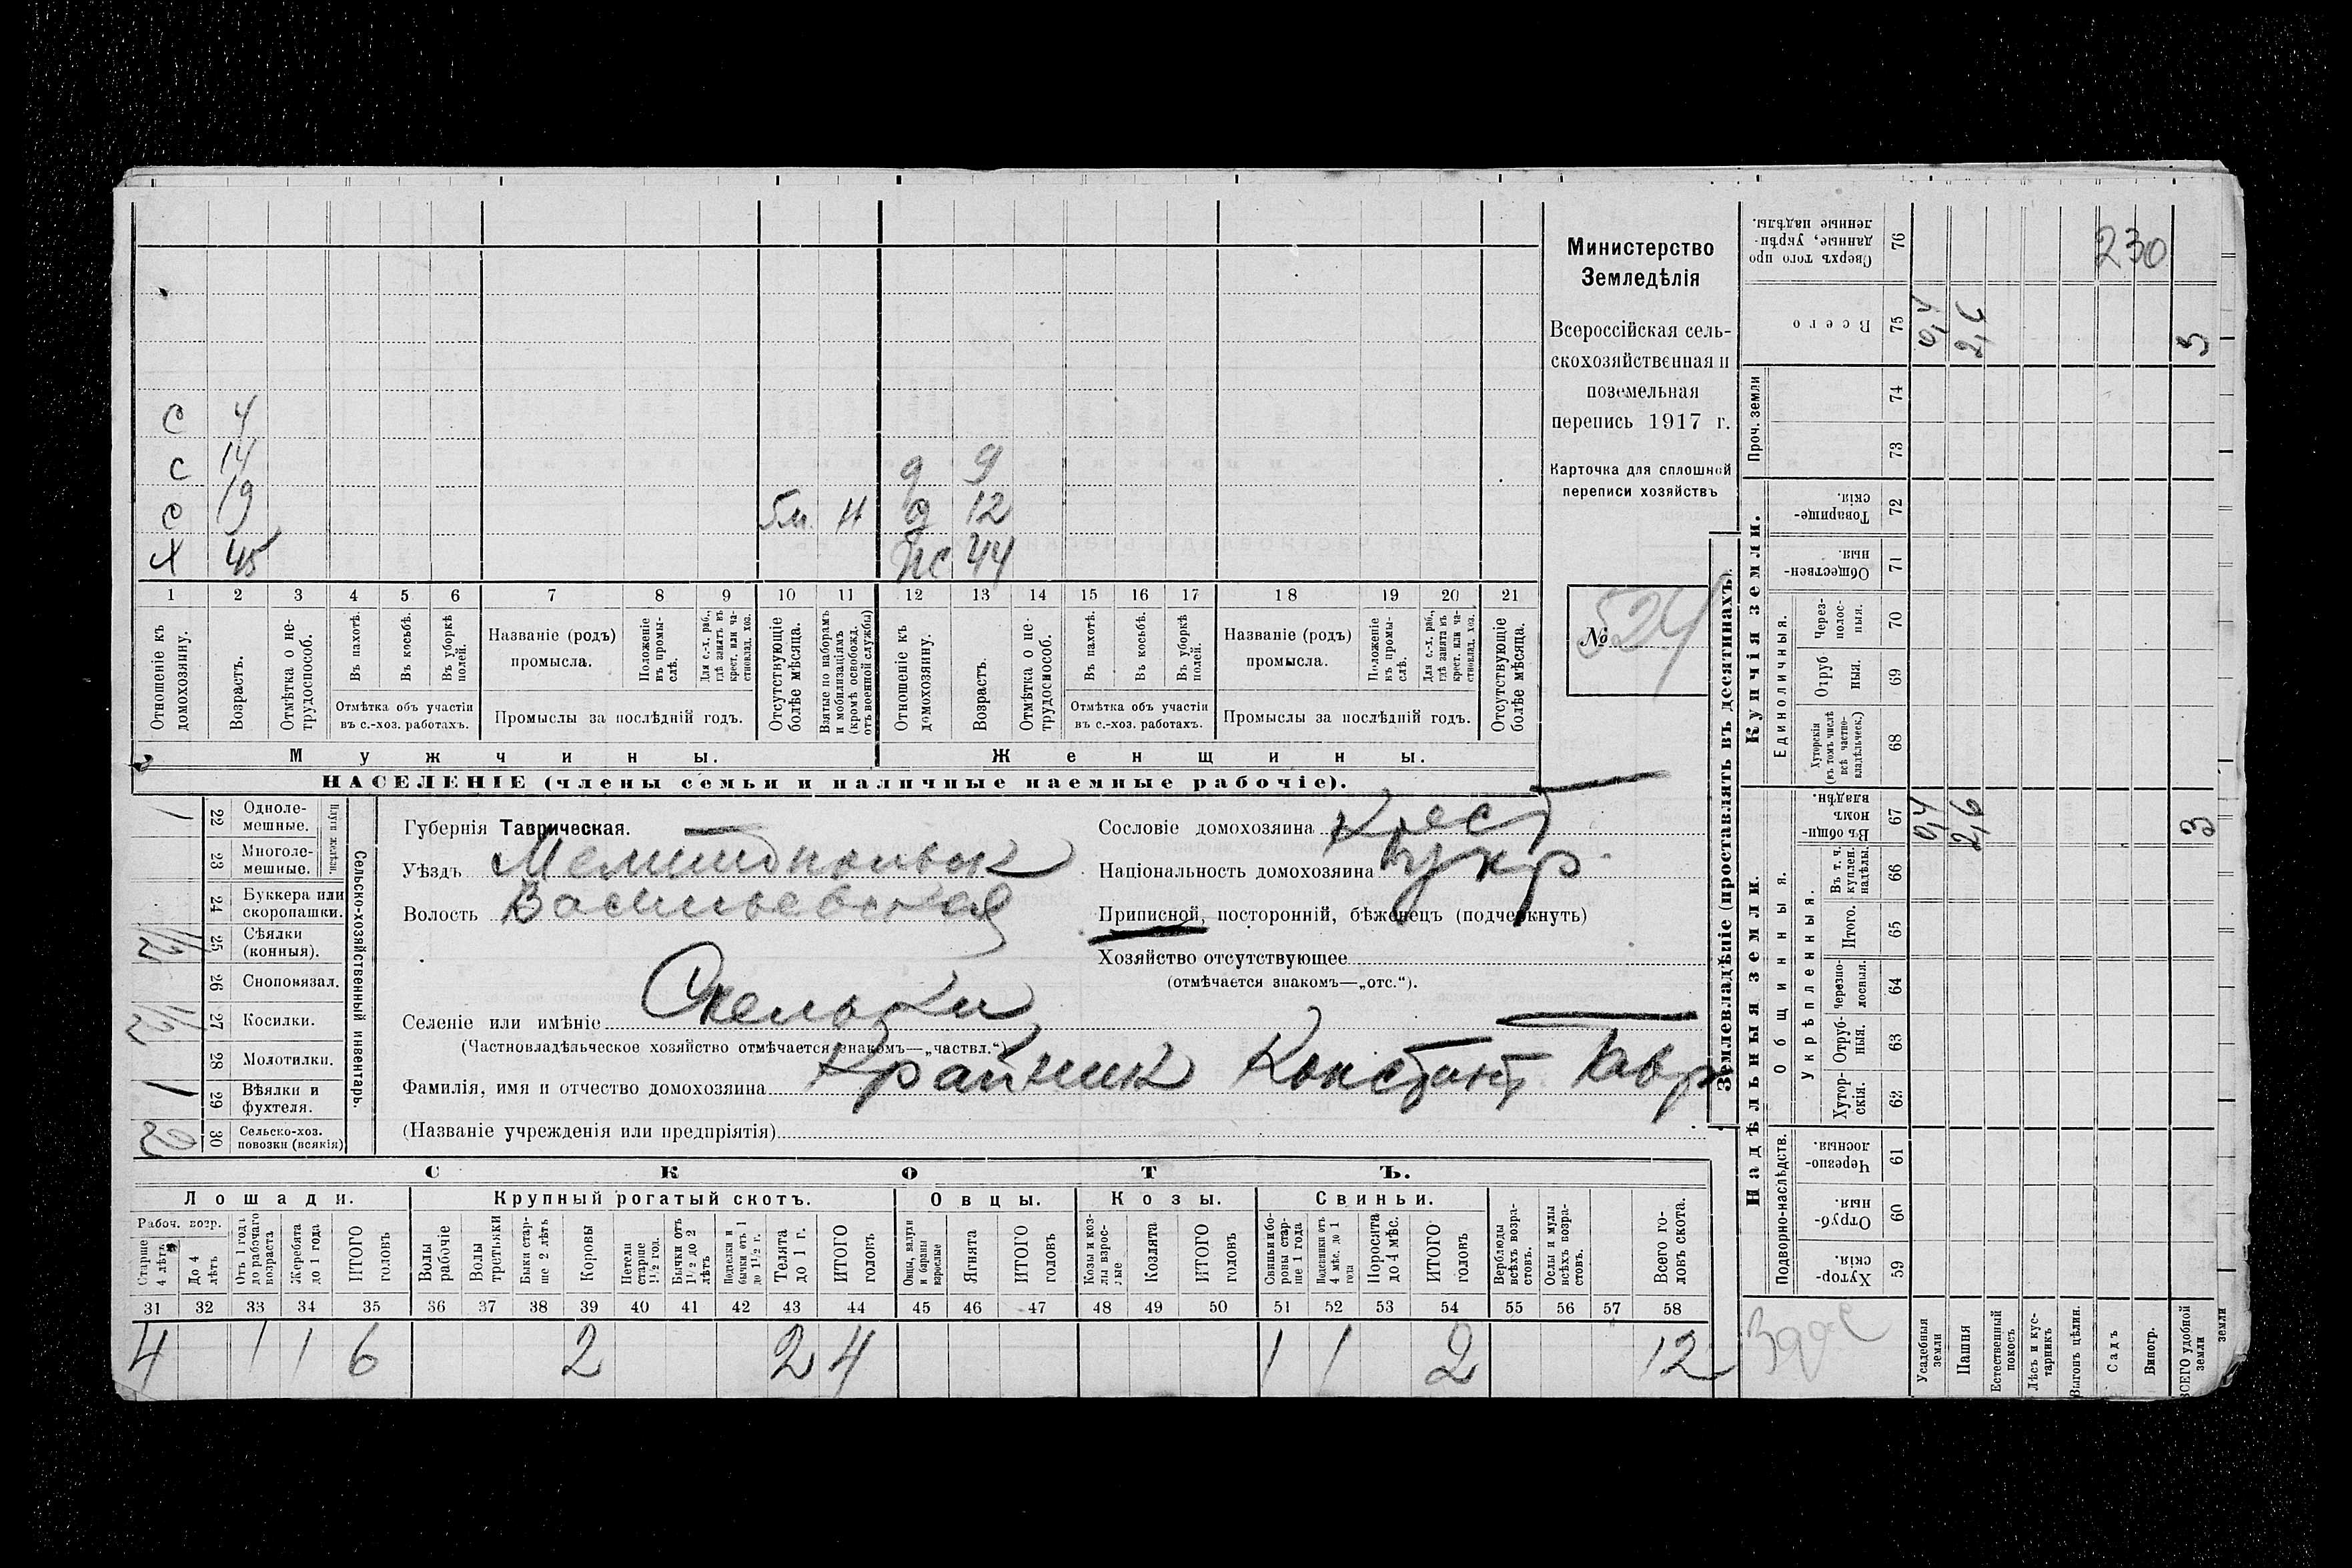 Министерство
Земледѣлія
Всероссійская сель-
скохозяйственная и
поземельная
перепись 1917 г.
Карточка для сплошной
переписи хозяйствъ
№ 524
с 4
с 14 д 9
с 19 5м. Н д 12
х 45 жс 44
1 2 3 4 5 6 7 8 9 10 11 12 13 14 15 16 17 18 19 20 21
Отношеніе къ домохозяину.
Возрастъ.
Отмѣтка о не-трудоспособ.
Въ пахотѣ.
Въ косьбѣ.
Въ уборкѣ полей.
Отмѣтка объ участіи
въ с.-хоз. работахъ.
Названіе (родъ)
промысла.
Положеніе въ промы-слѣ.
Для с.-х. раб., гдѣ занятъ въ крест. или ча-стновлад. хоз.
Промыслы за послѣдній годъ.
Отсутствующіе болѣе мѣсяца.
Взятые по наборамъ и мобилизаціямъ (кромѣ освобожд. отъ военной службы)
Отношеніе къ домохозяину.
Возрастъ.
Отмѣтка о не-трудоспособ.
Въ пахотѣ.
Въ косьбѣ.
Въ уборкѣ полей.
Отмѣтка объ участіи
въ с.-хоз. работахъ.
Названіе (родъ)
промысла.
Положеніе въ промы-слѣ.
Для с.-х. раб., гдѣ занята въ крест. или ча-стновлад. хоз.
Промыслы за послѣдній годъ.
Отсутствующіе болѣе мѣсяца.
Мужчины. Женщины.
НАСЕЛЕНІЕ (члены семьи и наличные наемные рабочіе).
Сельско-хозяйственный инвентарь.
Плуги желѣзн.
1 22 Одноле-мешные.
23 Многоле-мешные.
24 Буккера или скоропашки.
1/2 25 Сѣялки (конныя).
26 Сноповязал.
1/2 27 Косилки.
28 Молотилки.
1 29 Вѣялки и фухтеля.
2 30 Сельско-хоз. повозки (всякія)
Губернія Таврическая.
Уѣздъ Мелитопольск
Волость Васильевская
Сословіе домохозяина Крест
Національность домохозяина укр.
Приписной, посторонній, бѣженецъ (подчеркнуть)
Хозяйство отсутствующее
(отмѣчается знакомъ—„отс.“).
Селеніе или имѣніе Скельки
(Частновладѣльческое хозяйство отмѣчается знакомъ—„частвл.“)
Фамилія, имя и отчество домохозяина Крайник Констант Гавр
(Названіе учрежденія или предпріятія)
СКОТЪ.
Лошади. Крупный рогатый скотъ. Овцы. Козы. Свиньи.
Рабоч. возр.
Старше 4 лѣтъ
До 4 лѣтъ
Отъ 1 года до рабочаго возраста
Жеребята до 1 года
ИТОГО головъ
Волы рабочіе
Волы третьяки
Быки стар-ше 2 лѣтъ
Коровы
Нетели старше 1 1/2 год.
Бычки отъ 1 1/2 до 2 лѣтъ
Подтелки и бычки отъ 1 до 1 1/2 г.
Телята до 1 г.
ИТОГО головъ
Овцы, валухи и бараны взрослые
Ягнята
ИТОГО головъ
Козы и коз-лы взрос-лые
Козлята
ИТОГО головъ
Свиньи и бо-ровы стар-ше 1 года
Подсвинки отъ 4 мѣс. до 1 года
Поросята до 4 мѣс.
ИТОГО головъ
Верблюды всѣхъ возра-стовъ.
Ослы и мулы всѣхъ возра-стовъ.
Всего го-ловъ скота.
31 32 33 34 35 36 37 38 39 40 41 42 43 44 45 46 47 48 49 50 51 52 53 54 55 56 57 58
4 1 1 6 2 2 4 1 1 2 12
Землевладѣніе (проставлять въ десятинахъ).
Надѣльныя земли. Купчія земли.
Подворно-наслѣдств.
Общинныя.
Укрѣпленныя.
Единоличныя.
Проч. земли
Хутор-скія. 59
Отруб-ныя. 60
Черезпо-лосныя. 61
Хутор-скія. 62
Отруб-ныя. 63
Черезпо-лосныя. 64
Итого. 65
Въ т. ч. куплен. надѣлы. 66
Въ общи-номъ владѣн. 67
Хуторскія (въ томъ числѣ всѣ частно-владѣльческ.) 68
Отруб ныя. 69
Через-полос-ныя. 70
Обществен-ныя. 71
Товарище-скія. 72
73
74
Всего 75
Сверхъ того про данные, укрѣп-ленные надѣлы. 76
Усадебныя земли 0,4 0,4
Пашня 2,6 2,6
Естественный покосъ
Лѣсъ и кус-тарникъ
Выгонъ цѣлин.
Садъ
Виногр.
ВСЕГО удобной земли 3 3
земли
230